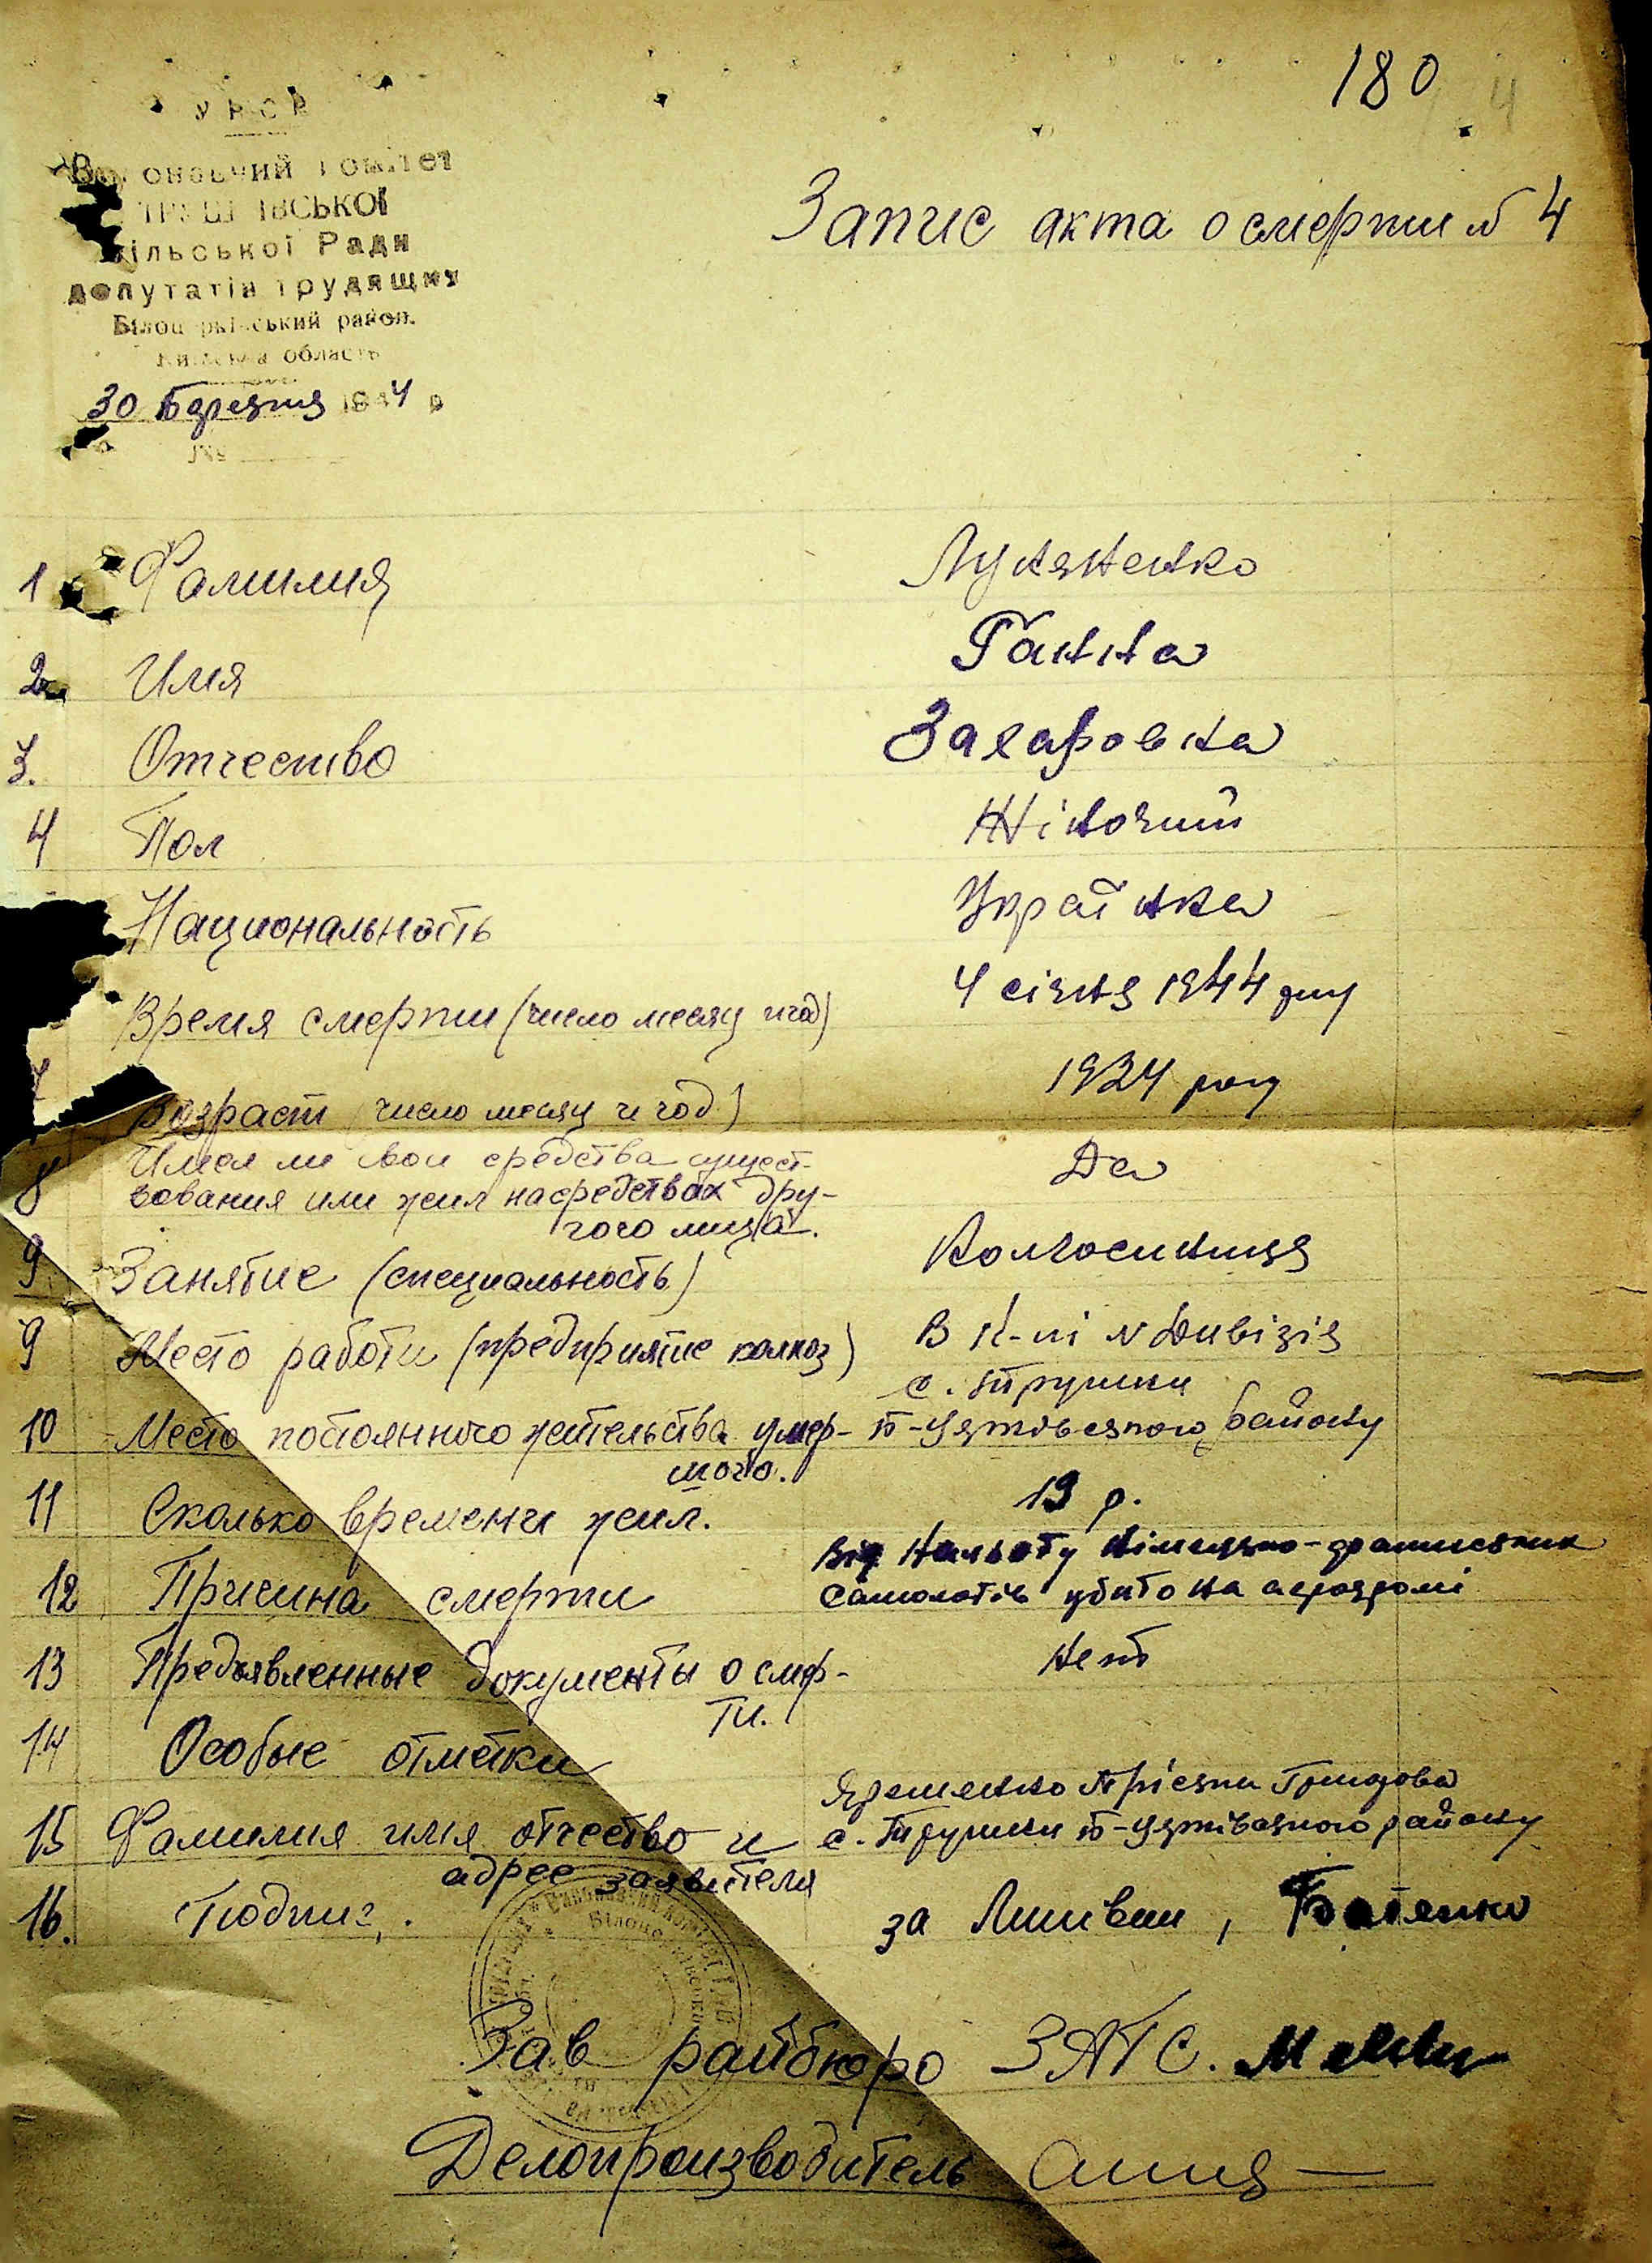 180
4
УРСР
Виконавчий Комітет
ТРУШ ІВСЬКОЇ
сільської Ради
депутатів трудящих
Білоцерківський район.
Київська область
30 березня 1944 р
№
Запис акта о смерти № 4
1 Фамилия Лук'яненко
2 Имя Ганна
3. Отчество Захаровна
4 Пол Жіночий
Национальность Українка
Время смерти (число месяц и год) 4 січня 1944 року
Возраст (число месяц и год) 1924 року
8 Имел ли свои средства сущест-
вования или жил на средствах дру-
гого лица. Да
9 Занятие (специальность) Колгосниця
9 Место работы (предприятие колхоз) В к-пі Дивізія
с. Трушки
10 Место постоянного жительства умер- Б-Церківського району
шого.
11 Сколько времени жил. 19 р.
Від нальоту німецько-фашистських
12 Причина смерти самолотів убито на аеродромі
13 Предъявленные документы о смер- Нет
ти.
14 Особые отметки
15 Фамилия имя отчество и с. Трушки Б-Церківського району
адрес заявителя
16. Подпис. за
Зав райбюро ЗАГС.
Делопроизводитель